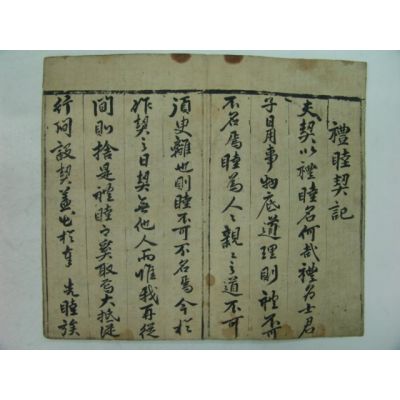 禮睦契記
夫契以禮睦名何哉禮爲士君
子日用事物底道理則禮不可
不名焉睦爲人人親親之道不可
須臾離也則睦不可不名焉今於
作契之日契無他人而惟我再從
間則捨是禮睦而奚取焉大抵從
行間設契蓋出於奉先睦族